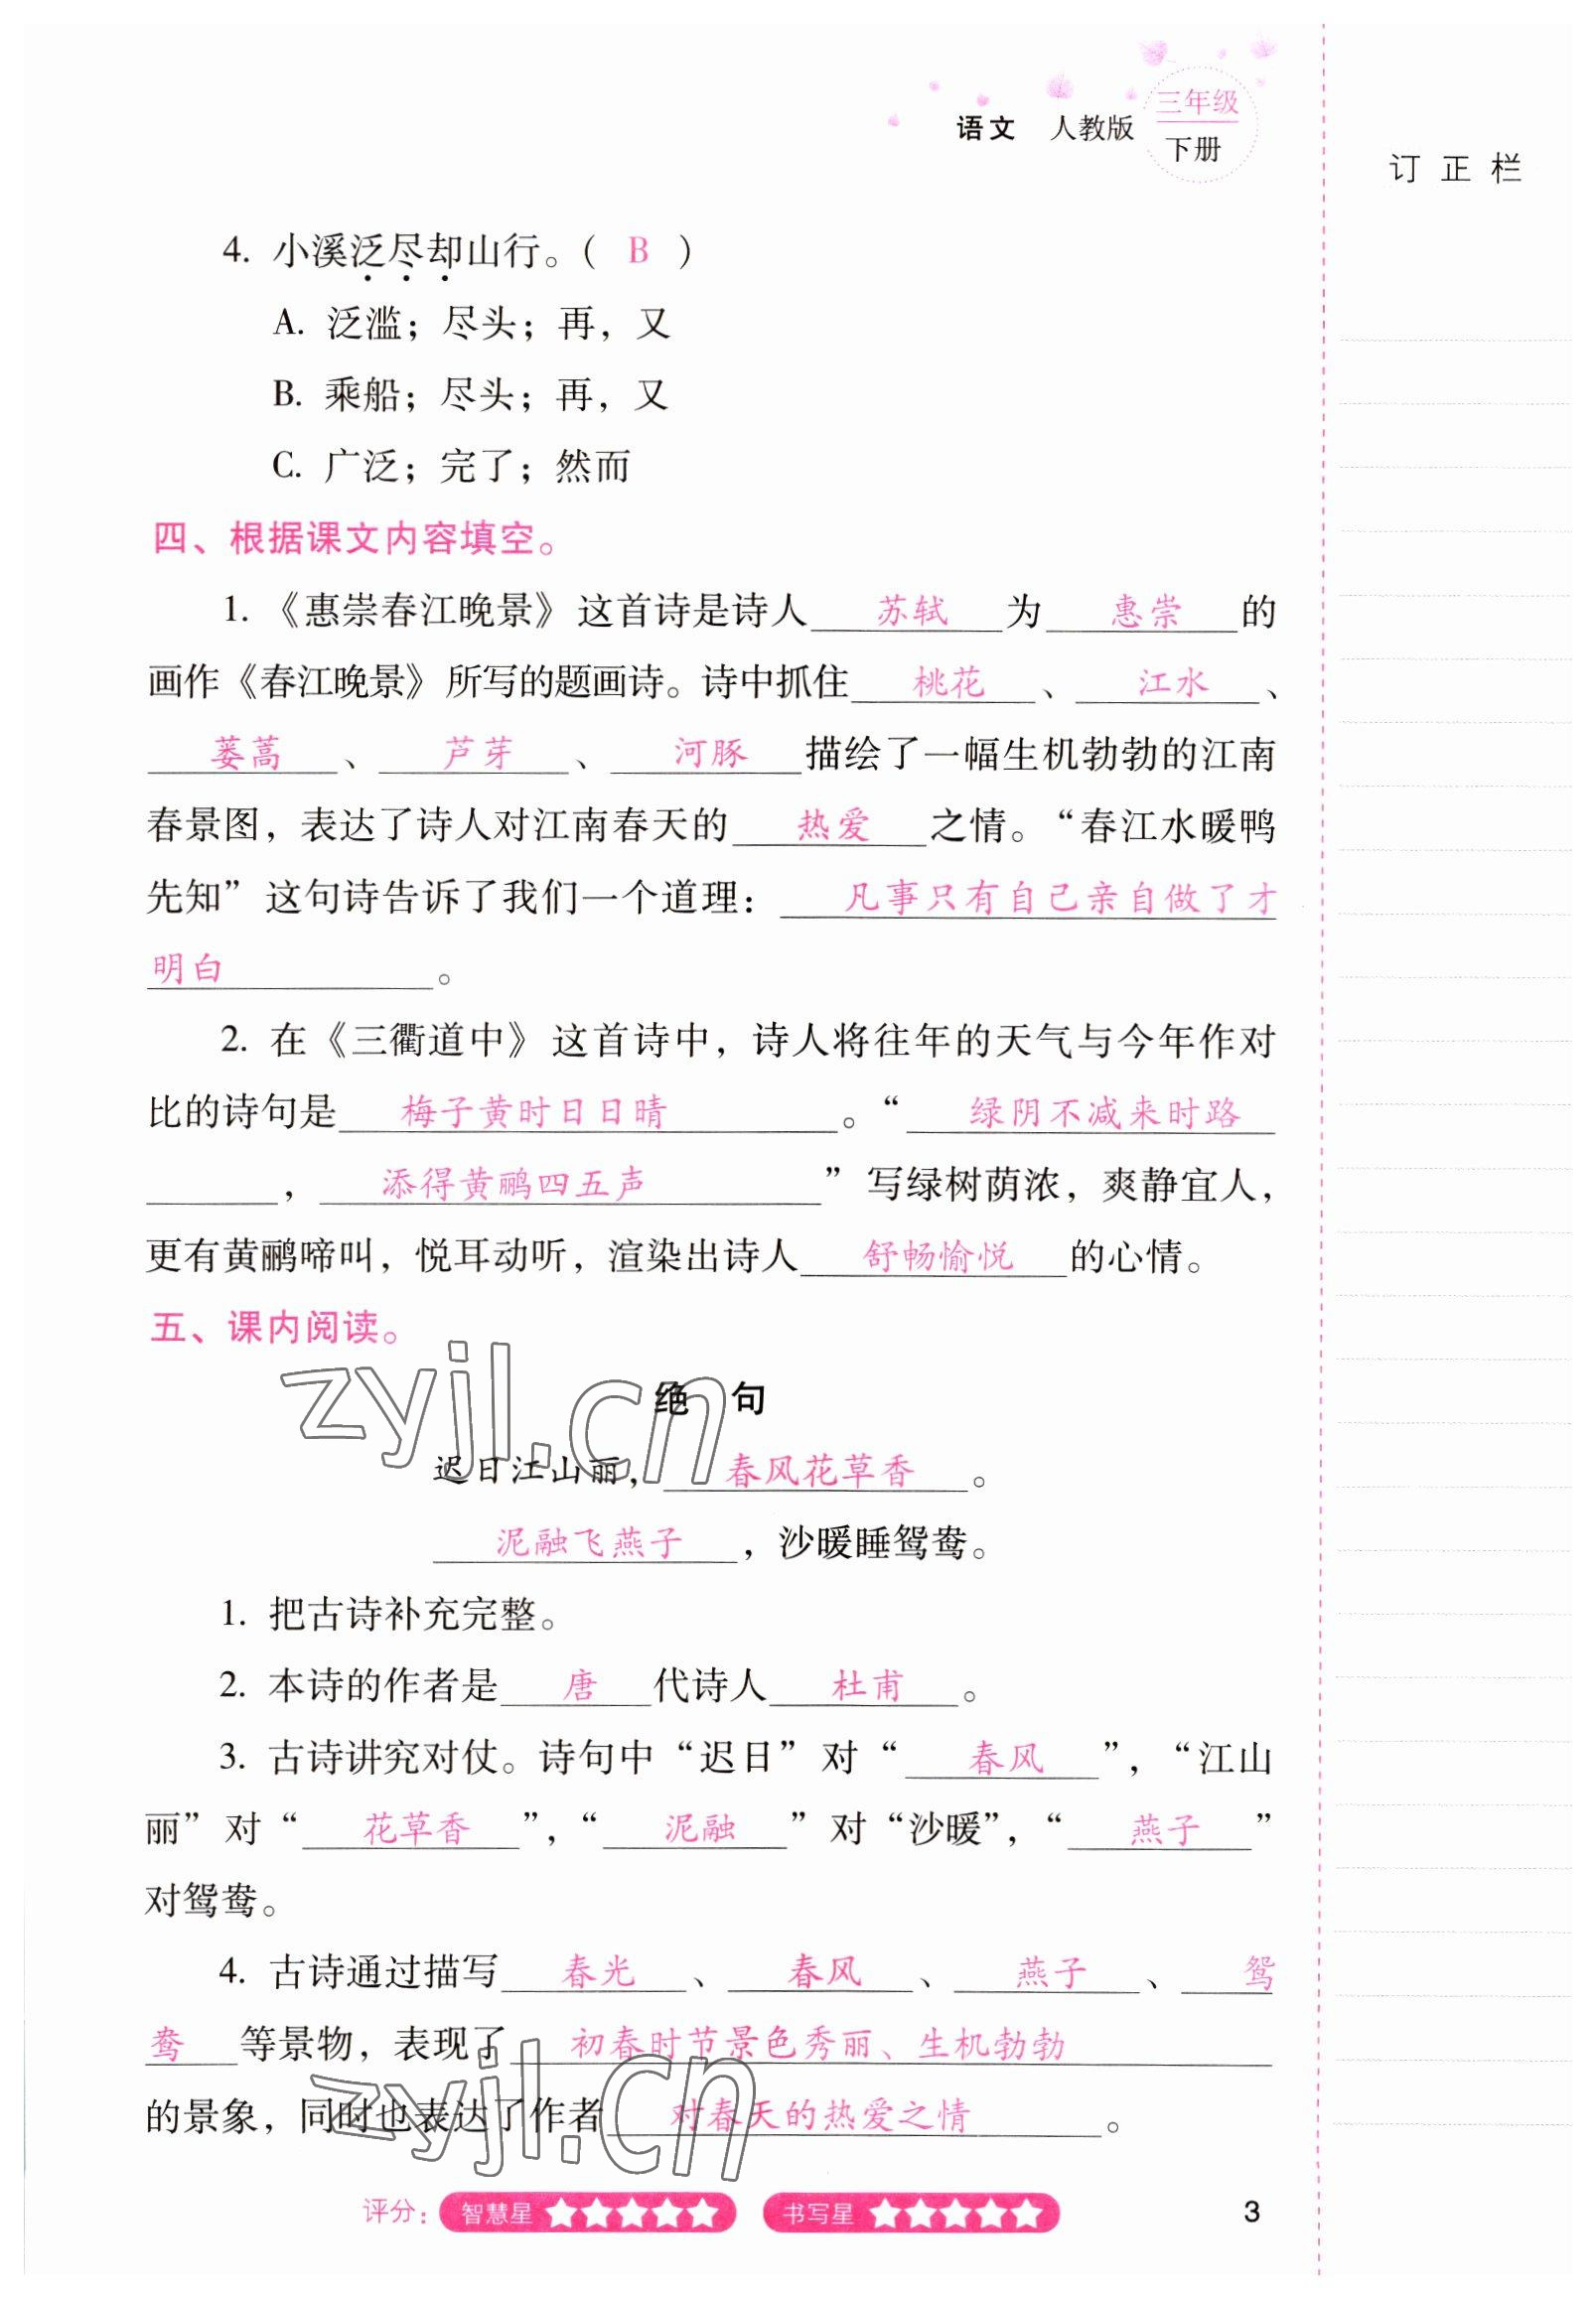 语文 人教版 三年级
下册
订正栏
4. 小溪泛尽却山行。( B )
A. 泛滥；尽头；再，又
B. 乘船；尽头；再，又
C. 广泛；完了；然而
四、根据课文内容填空。
1. 《惠崇春江晚景》这首诗是诗人 苏轼 为 惠崇 的
画作《春江晚景》所写的题画诗。诗中抓住 桃花 、 江水 、
蒌蒿 、 芦芽 、 河豚 描绘了一幅生机勃勃的江南
春景图，表达了诗人对江南春天的 热爱 之情。“春江水暖鸭
先知”这句诗告诉了我们一个道理： 凡事只有自己亲自做了才
明白 。
2. 在《三衢道中》这首诗中，诗人将往年的天气与今年作对
比的诗句是 梅子黄时日日晴 。“ 绿阴不减来时路
， 添得黄鹂四五声 ”写绿树荫浓，爽静宜人，
更有黄鹂啼叫，悦耳动听，渲染出诗人 舒畅愉悦 的心情。
五、课内阅读。
绝 句
迟日江山丽， 春风花草香 。
泥融飞燕子 ，沙暖睡鸳鸯。
1. 把古诗补充完整。
2. 本诗的作者是 唐 代诗人 杜甫 。
3. 古诗讲究对仗。诗句中“迟日”对“ 春风 ”，“江山
丽”对“ 花草香 ”，“ 泥融 ”对“沙暖”，“ 燕子 ”
对鸳鸯。
4. 古诗通过描写 春光 、 春风 、 燕子 、 鸳
鸯 等景物，表现了 初春时节景色秀丽、生机勃勃
的景象，同时也表达了作者 对春天的热爱之情 。
zyjl.cn
zyjl.cn
评分： 智慧星 ☆☆☆☆☆ 书写星 ☆☆☆☆☆ 3